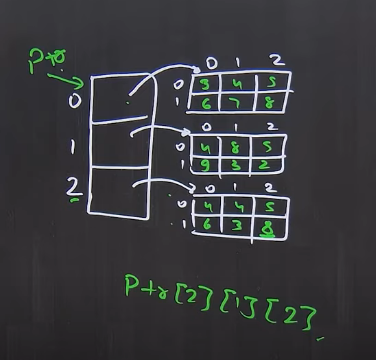 Ptr
0 1 2
0 3 4 5
0
1 6 7 8
0 1 2
1
0 4 8 5
1 9 3 2
0 1 2
2
0 4 4 5
1 6 3 8
Ptr[2][1][2]